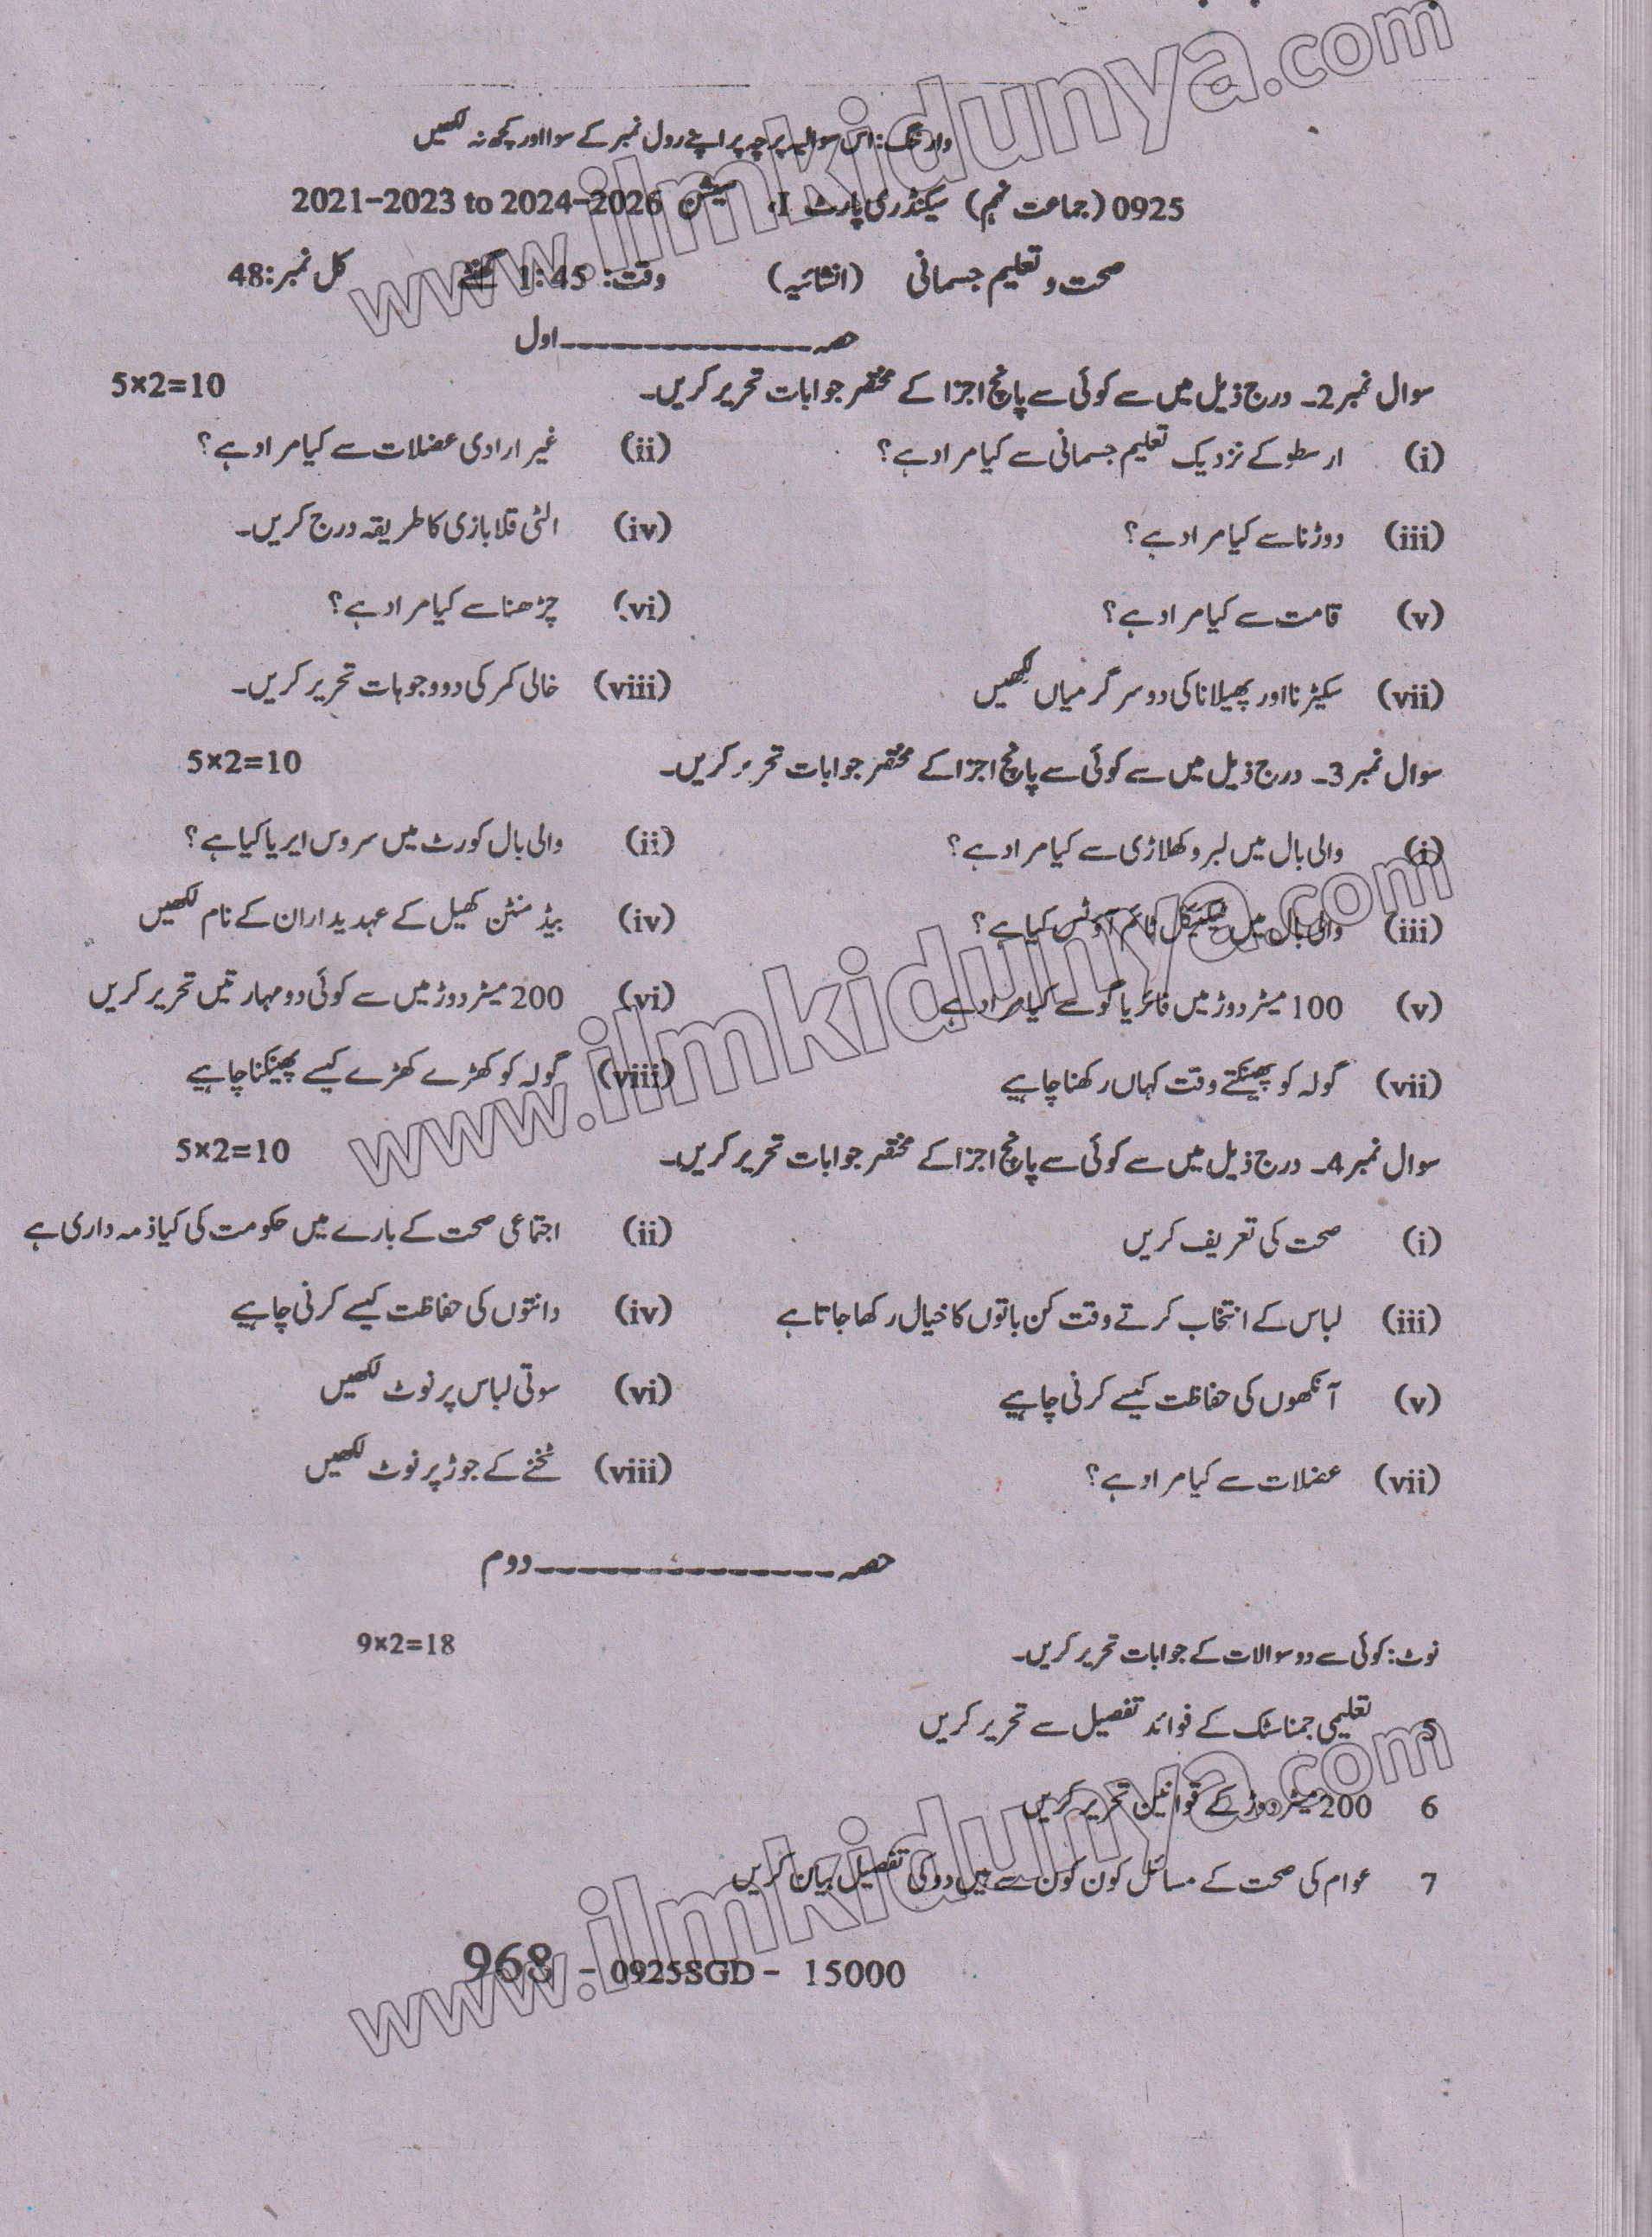 وارننگ: اس سوالیہ پرچہ پر اپنے رول نمبر کے سوا اور کچھ نہ لکھیں
0925 (جماعت نہم) سیکنڈری پارٹ I، سیشن 2021-2023 to 2024-2026
صحت و تعلیم جسمانی (انشائیہ) وقت: 1:45 گھنٹے کل نمبر: 48
حصہ ---------------- اول
سوال نمبر 2۔ درج ذیل میں سے کوئی سے پانچ اجزا کے مختصر جوابات تحریر کریں۔ 5×2=10
(i) ارسطو کے نزدیک تعلیم جسمانی سے کیا مراد ہے؟ (ii) غیر ارادی عضلات سے کیا مراد ہے؟
(iii) دوڑنا سے کیا مراد ہے؟ (iv) الٹی قلابازی کا طریقہ درج کریں۔
(v) قامت سے کیا مراد ہے؟ (vi) چڑھنا سے کیا مراد ہے؟
(vii) سکیڑنا اور پھیلانا کی دو سرگرمیاں لکھیں (viii) خالی کمر کی دو وجوہات تحریر کریں۔
سوال نمبر 3۔ درج ذیل میں سے کوئی سے پانچ اجزا کے مختصر جوابات تحریر کریں۔ 5×2=10
(i) والی بال میں لبرو کھلاڑی سے کیا مراد ہے؟ (ii) والی بال کورٹ میں سروس ایریا کیا ہے؟
(iii) والی بال میں ٹیکنیکل ٹائم آؤٹس کیا ہے؟ (iv) بیڈ منٹن کھیل کے عہدیداران کے نام لکھیں
(v) 100 میٹر دوڑ میں فائر یا گو سے کیا مراد ہے (vi) 200 میٹر دوڑ میں سے کوئی دو مہارتیں تحریر کریں
(vii) گولہ کو پھینکتے وقت کہاں رکھنا چاہیے (viii) گولہ کو کھڑے کھڑے کیسے پھینکنا چاہیے
سوال نمبر 4۔ درج ذیل میں سے کوئی سے پانچ اجزا کے مختصر جوابات تحریر کریں۔ 5×2=10
(i) صحت کی تعریف کریں (ii) اجتماعی صحت کے بارے میں حکومت کی کیا ذمہ داری ہے
(iii) لباس کے انتخاب کرتے وقت کن باتوں کا خیال رکھا جاتا ہے (iv) دانتوں کی حفاظت کیسے کرنی چاہیے
(v) آنکھوں کی حفاظت کیسے کرنی چاہیے (vi) سوتی لباس پر نوٹ لکھیں
(vii) عضلات سے کیا مراد ہے؟ (viii) ٹخنے کے جوڑ پر نوٹ لکھیں
حصہ ------------------ دوم
نوٹ: کوئی سے دو سوالات کے جوابات تحریر کریں۔ 9×2=18
5 تعلیمی جمناسٹک کے فوائد تفصیل سے تحریر کریں
6 200 میٹر دوڑ کے قوانین تحریر کریں
7 عوام کی صحت کے مسائل کون کون سے ہیں دو کی تفصیل بیان کریں
968 - 0925SGD - 15000
www.ilmkidunya.com
www.ilmkidunya.com
www.ilmkidunya.com